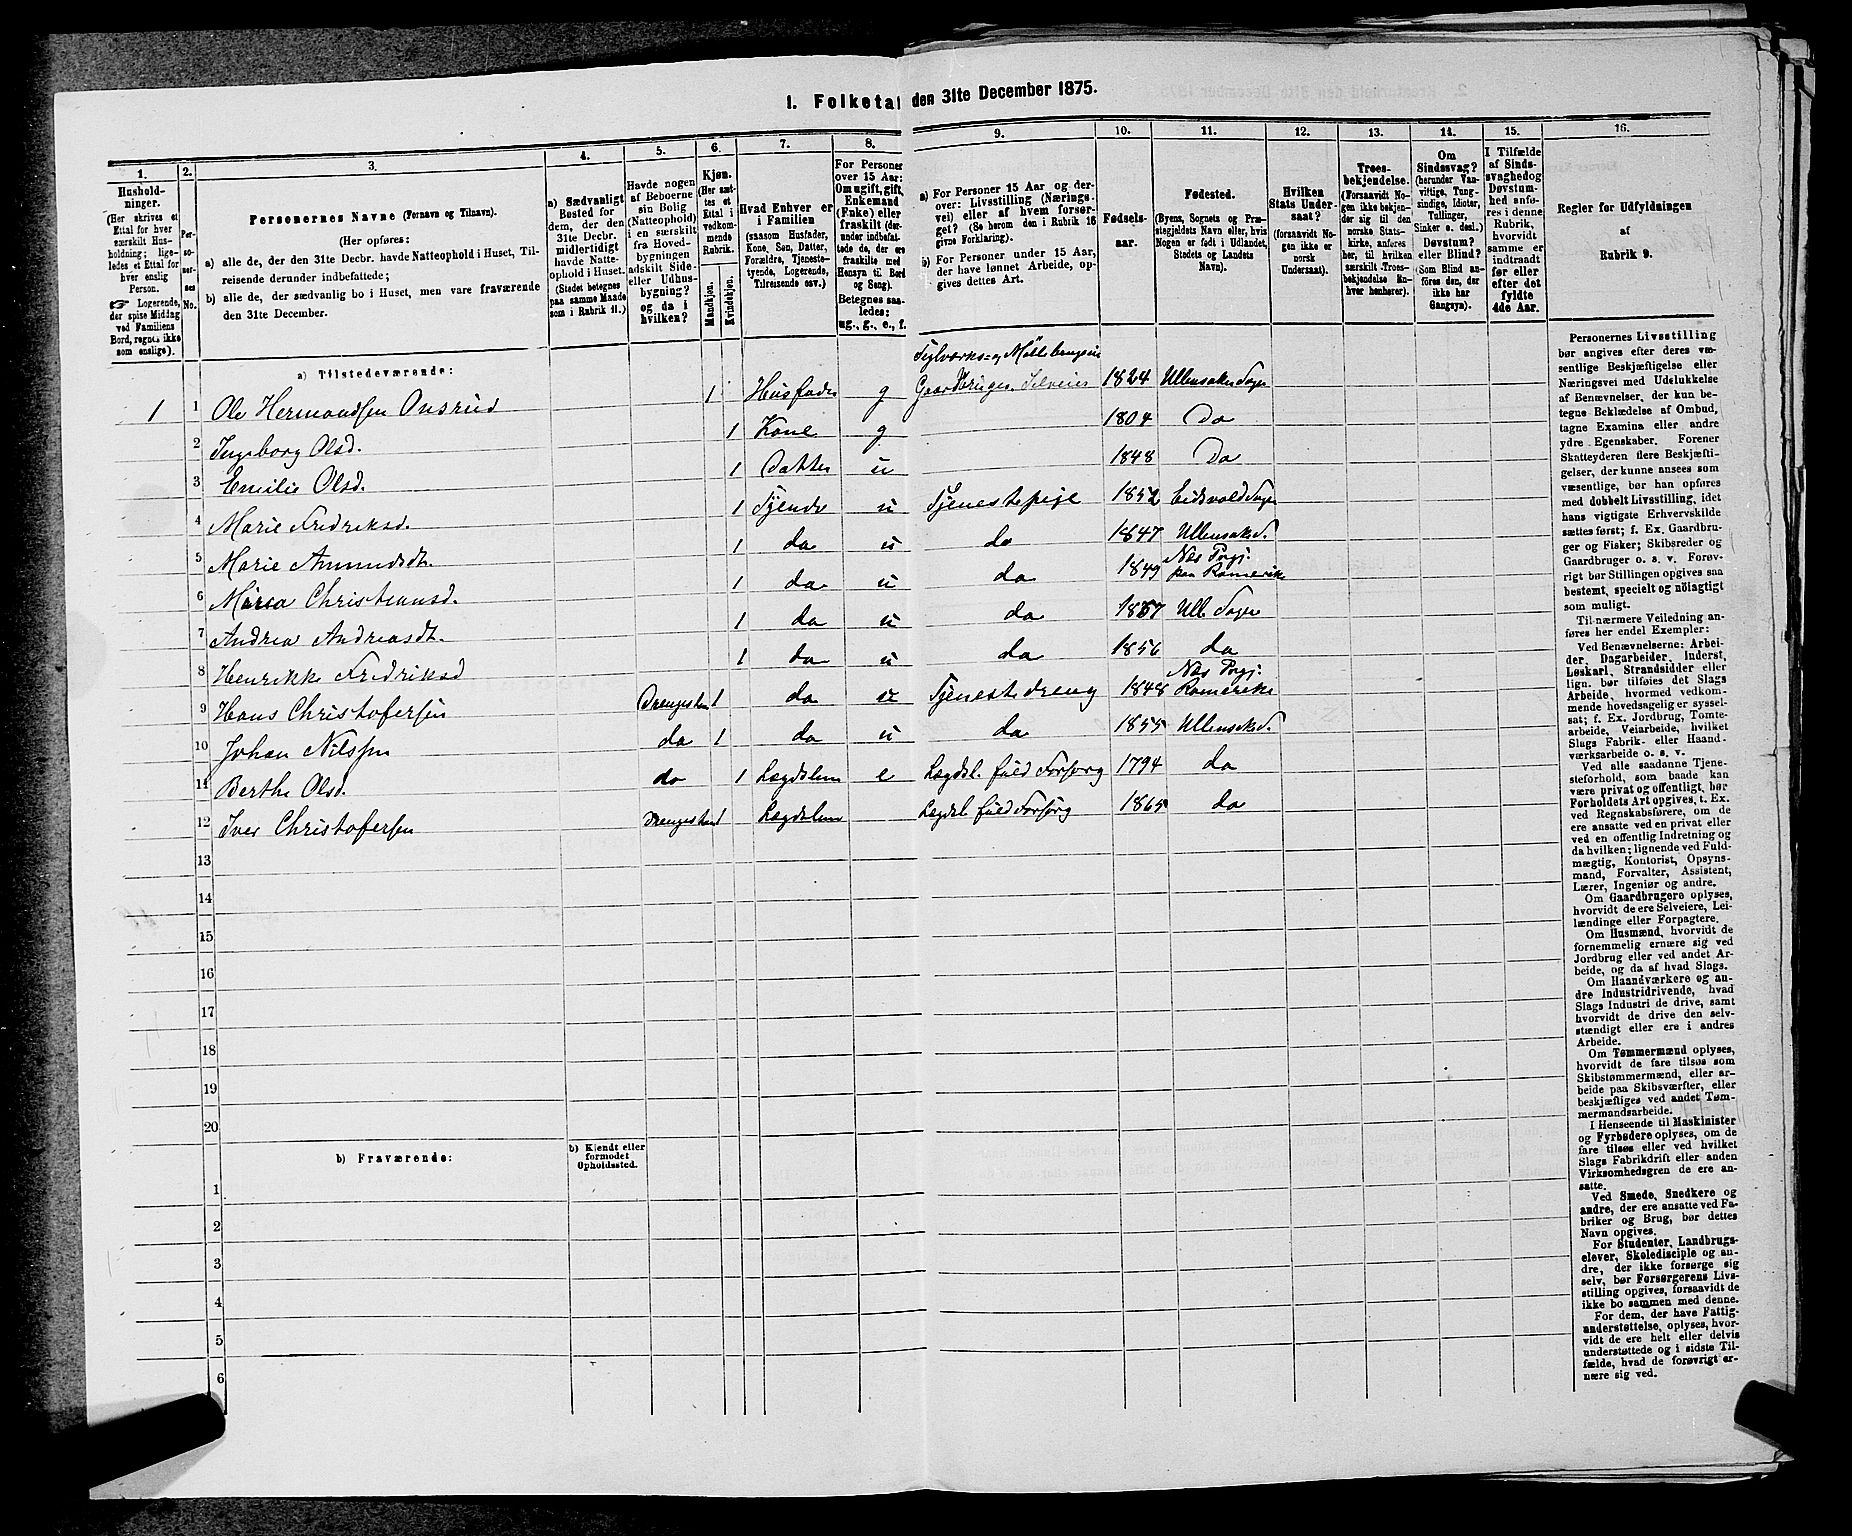 1. Folketal den 31te December 1875.
1. Husholdninger. (Her skrives et Ettal for hver særskilt Husholdning; ligeledes et Ettal for hver enslig Person.
☞ Logerende, der spise Middag ved Familiens Bord, regnes ikke som enslige).
2. Personernes No.
3. Personernes Navne (Fornavn og Tilnavn).
(Her opføres:
a) alle de, der den 31te Decbr. havde Natteophold i Huset, Tilreisende derunder indbefattede;
b) alle de, der sædvanlig bo i Huset, men vare fraværende den 31te December.
4. a) Sædvanligt Bosted for dem, der den 31te Decbr. midlertidigt havde Natteophold i Huset. (Stedet betegnes paa samme Maade som i Rubrik 11.)
5. Havde nogen af Beboerne sin Bolig (Natteophold) i en særskilt fra Hovedbygningen adskilt Side- eller Udhusbygning? og da i hvilken?
6. Kjøn. (Her sættes et Ettal i vedkommende Rubrik.
Mandkjøn. Kvindekjøn.
7. Hvad Enhver er i Familien (saasom Husfader, Kone, Søn, Datter, Forældre, Tjenestetyende, Logerende, Tilreisende osv.)
8. For Personer over 15 Aar: Om ugift, gift, Enkemand (Enke) eller fraskilt (derunder indbefattede de, der ere fraskilte med Hensyn til Bord og Seng).
Betegnes saaledes: ug., g., e., f.
9. a) For Personer 15 Aar og derover: Livsstilling (Næringsvei) eller af hvem forsørget? (Se herom den i Rubrik 16 givne Forklaring).
b) For Personer under 15 Aar, der have lønnet Arbeide, opgives dettes Art.
10. Fødselsaar.
11. Fødested. (Byens, Sognets og Præstegjeldets Navn eller, hvis Nogen er født i Udlandet, Stedets og Landets Navn).
12. Hvilken Stats Undersaat? (forsaavidt Nogen ikke er norsk Undersaat).
13. Troesbekjendelse. (Forsaavidt Nogen ikke bekjender sig til den norske Statskirke, anføres her, til hvilken særskilt Troesbekjendelse Enhver henhører).
14. Om Sindssvag? (herunder Vanvittige, Tungsindige, Idioter, Tullinger, Sinker o. desl.) Døvstum? eller Blind? (Som Blind anføres den, der ikke har Gangsyn).
15. I Tilfælde af Sindssvaghed og Døvstumhed anføres i denne Rubrik, hvorvidt samme er indtraadt før eller efter det fyldte 4de Aar.
16. Regler for Udfyldningen af Rubrik 9.
a) Tilstedeværende:
Teglværks- og Møllebruges
1 1 Ole Hermandsen Onsrud 1 Husfader g Gaardbruger Selveier 1824 Ullensaker Sogn
2 Ingeborg Olsd. 1 Kone g 1804 Do
3 Emilie Olsd. 1 Datter u 1848 Do
4 Marie Fredriksd. 1 Tjende u Tjenestepige 1852 Eidsvold Sogn
5 Marie Amundsdt. 1 do u do 1847 Ullensaks.
6 Maria Christiansd. 1 do u do 1849 Næs Prgj. paa Romerike
7 Andrea Andreasdt. 1 do u do 1857 Ull. Sogn
8 Henrikke Fredriksd 1 do u do 1856 do
9 Hans Christofersen Drengestuen 1 do u Tjenestedreng 1848 Næs Prgj. Romerike
10 Johan Nilsen do 1 do u do 1855 Ullensaks.
11 Berthe Olsd. do 1 Lægdslem e Lægdsl. fuld Forsørg 1794 do
12 Iver Christofersen Drengestuen 1 Lægdslem Lægdsl fuld Forsørg 1865 do
13
14
15
16
17
18
19
20
b) Fraværende: b) Kjendt eller formodet Opholdssted.
1
2
3
4
5
6
Personernes Livsstilling
bør angives efter deres væ-
sentlige Beskjæftigelse eller
Næringsvei med Udelukkelse
af Benævnelser, der kun be-
tegne Beklædelse af Ombud,
tagne Examina eller andre
ydre Egenskaber. Forener
Skatteyderen flere Beskjæfti-
gelser, der kunne ansees som
væsentlige, bør han opføres
med dobbelt Livsstilling, idet
hans vigtigste Erhvervskilde
sættes først; f. Ex. Gaardbru-
ger og Fisker; Skibsreder og
Gaardbruger o. s. v. Forøv-
rigt bør Stillingen opgives saa
bestemt, specielt og nøiagtigt
som muligt.
Til nærmere Veiledning an-
føres her endel Exempler:
Ved Benævnelserne: Arbei-
der, Dagarbeider, Inderst,
Løskarl, Strandsidder eller
lign. bør tilføies det Slags
Arbeide, hvormed vedkom-
mende hovedsagelig er syssel-
sat; f. Ex. Jordbrug, Tomte-
arbeide, Veiarbeide, hvilket
Slags Fabrik- eller Haand-
værksarbeide o. s. v.
Ved alle saadanne Tjene-
steforhold, som baade kan
være privat og offentligt, bør
Forholdets Art opgives, t. Ex.
ved Regnskabsførere, om de
ere ansatte ved en privat eller
ved en offentlig Indretning og
da hvilken; lignende ved Fuld-
mægtig, Kontorist, Opsyns-
mand, Forvalter, Assistent,
Lærer, Ingeniør og andre.
Om Gaardbrugere oplyses,
hvorvidt de ere Selveiere, Lei-
lændinge eller Forpagtere.
Om Husmænd, hvorvidt de
fornemmelig ernære sig ved
Jordbrug eller ved andet Ar-
beide, og da af hvad Slags.
Om Haandværkere og an-
dre Industridrivende, hvad
Slags Industri de drive, samt
hvorvidt de drive den selv-
stændigt eller ere i andres
Arbeide.
Om Tømmermænd oplyses,
hvorvidt de fare tilsøs som
Skibstømmermænd, eller ar-
beide paa Skibsværfter, eller
beskjæftiges ved andet Tøm-
mermandsarbeide.
I Henseende til Maskinister
og Fyrbødere oplyses, om de
fare tilsøs eller ved hvilket
Slags Fabrikdrift eller anden
Virksomhedsgren de ere an-
satte.
Ved Smede, Snedkere og
andre, der ere ansatte ved Fa-
briker og Brug, bør dettes
Navn opgives.
For Studenter, Landbrugs-
elever, Skoledisciple og an-
dre, der ikke forsørge sig
selv, bør Forsørgerens Livs-
stilling opgives, forsaavidt de
ikke bo sammen med denne.
For dem, der have Fattig-
understøttelse, oplyses, hvor-
vidt de ere helt eller delvis
understøttede og i sidste Til-
fælde, hvad de forøvrigt er-
nære sig ved.